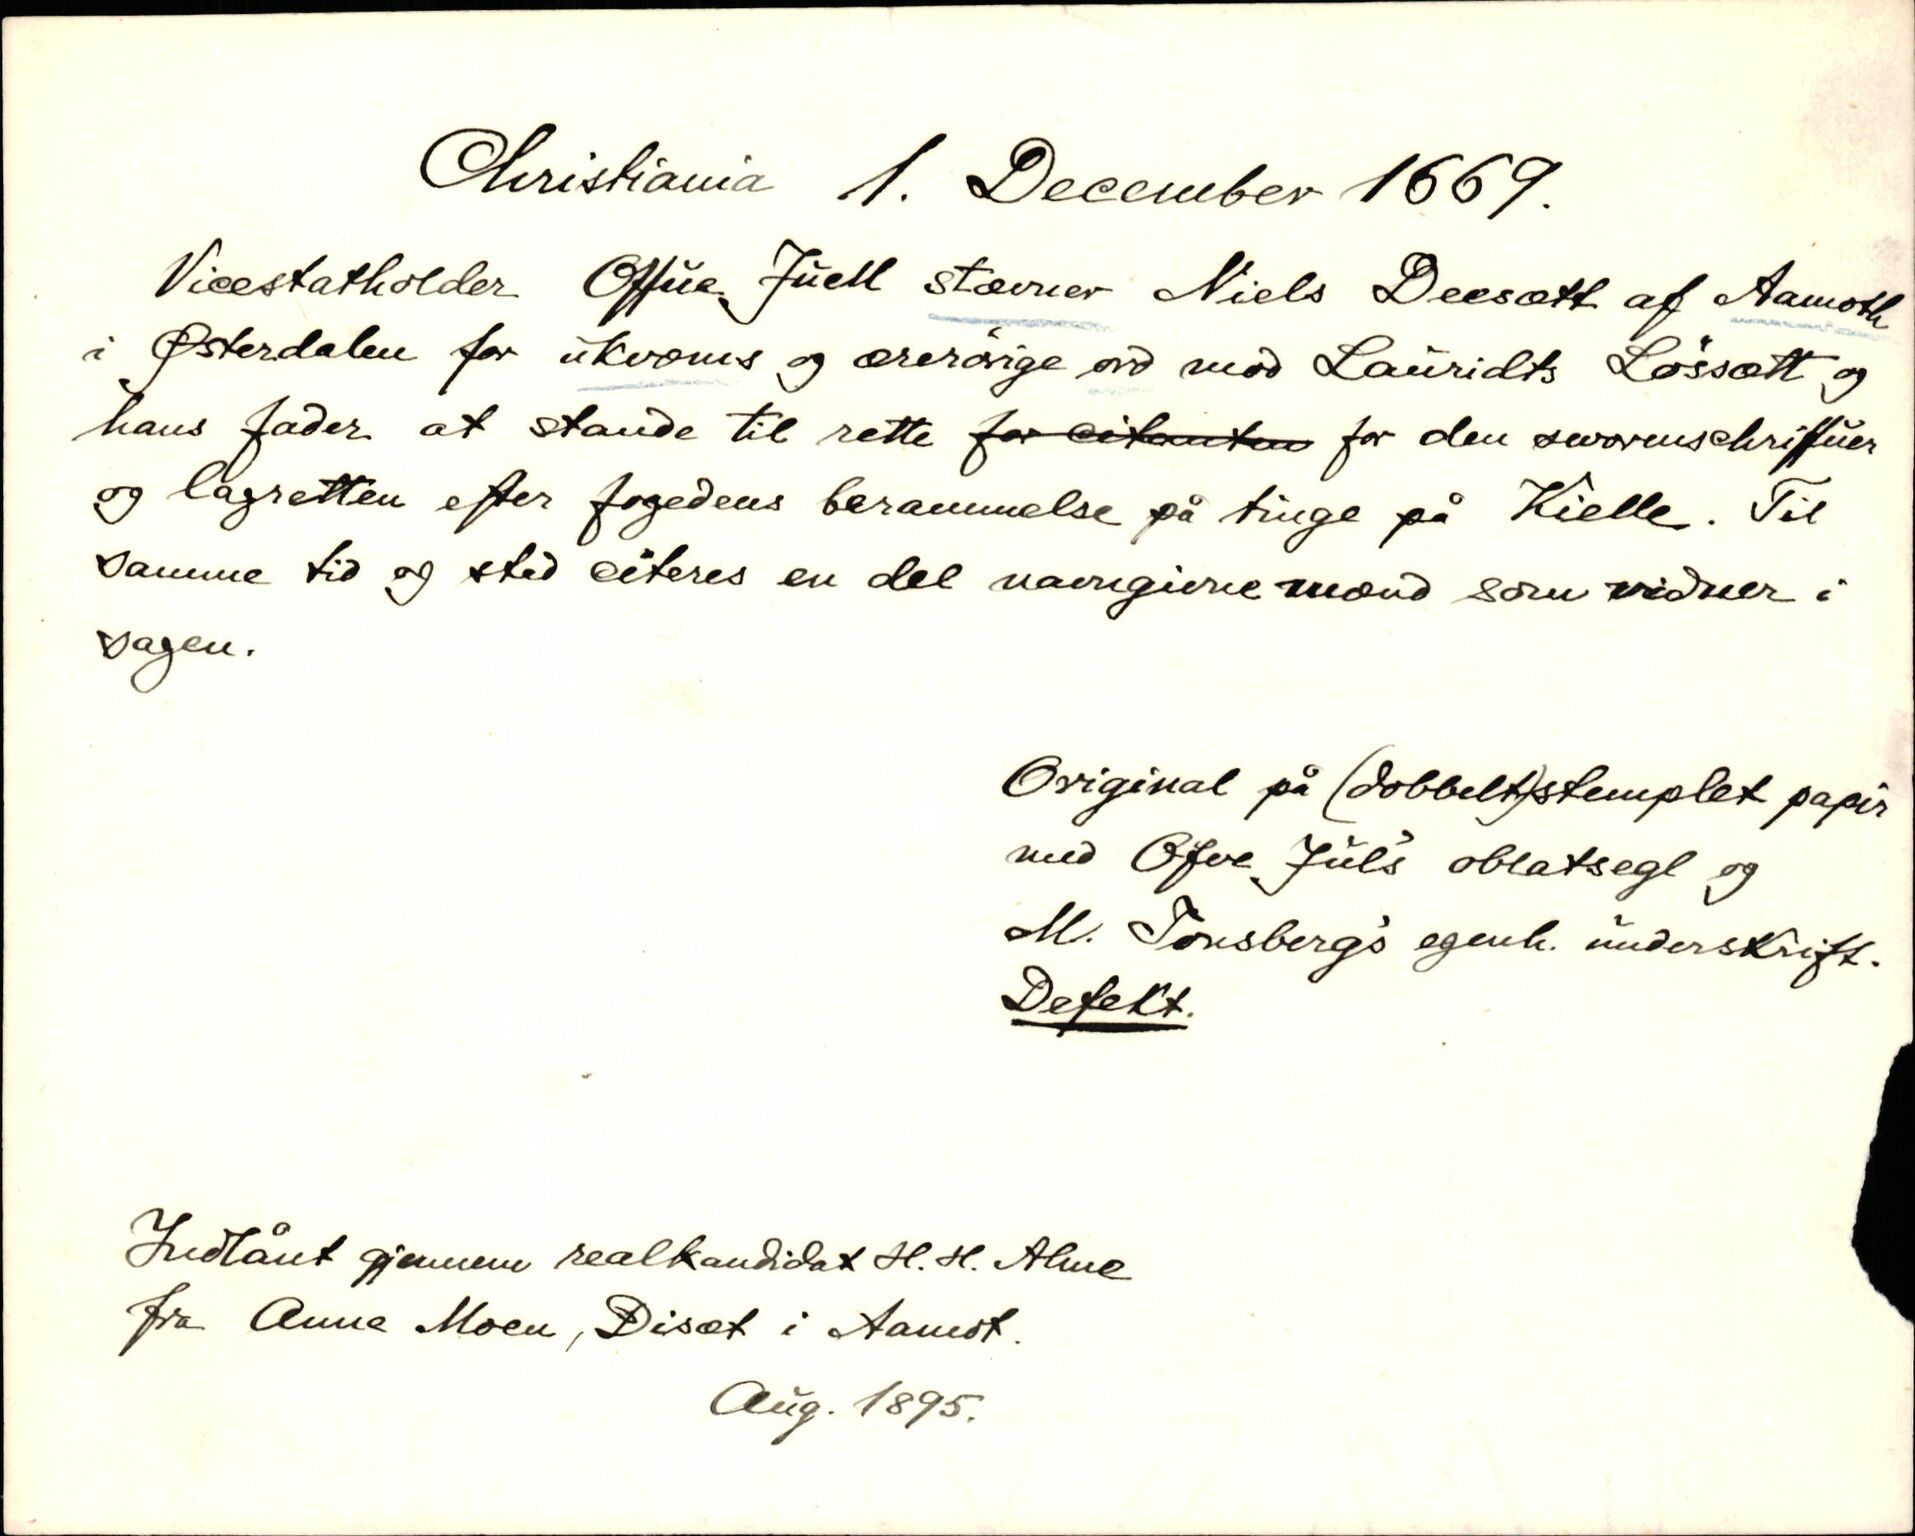 Christiania 1. December 1669.
Vicestatholder Offue Juell stævner Niels Deesætt af Aamoth
i Østerdalen for ukvæms og ærerörige ord mod Lauridts Lössætt og
hans fader at stande til rette for citanten for den sworenschriffuer
og lagretten efter fogedens berammelse på tinge på Kielle. Til
samme tid og sted citeres en del navngivne mænd som vidner i
sagen.
Original på (dobbelt)stemplet papir
med Ofve Jul's oblatsegl og
M. Tonsberg's egenh. underskrift.
Defekt.
Indlånt gjennem realkandidat H. H. Alme
fra Anne Moen, Disæt i Aamot.
Aug. 1895.